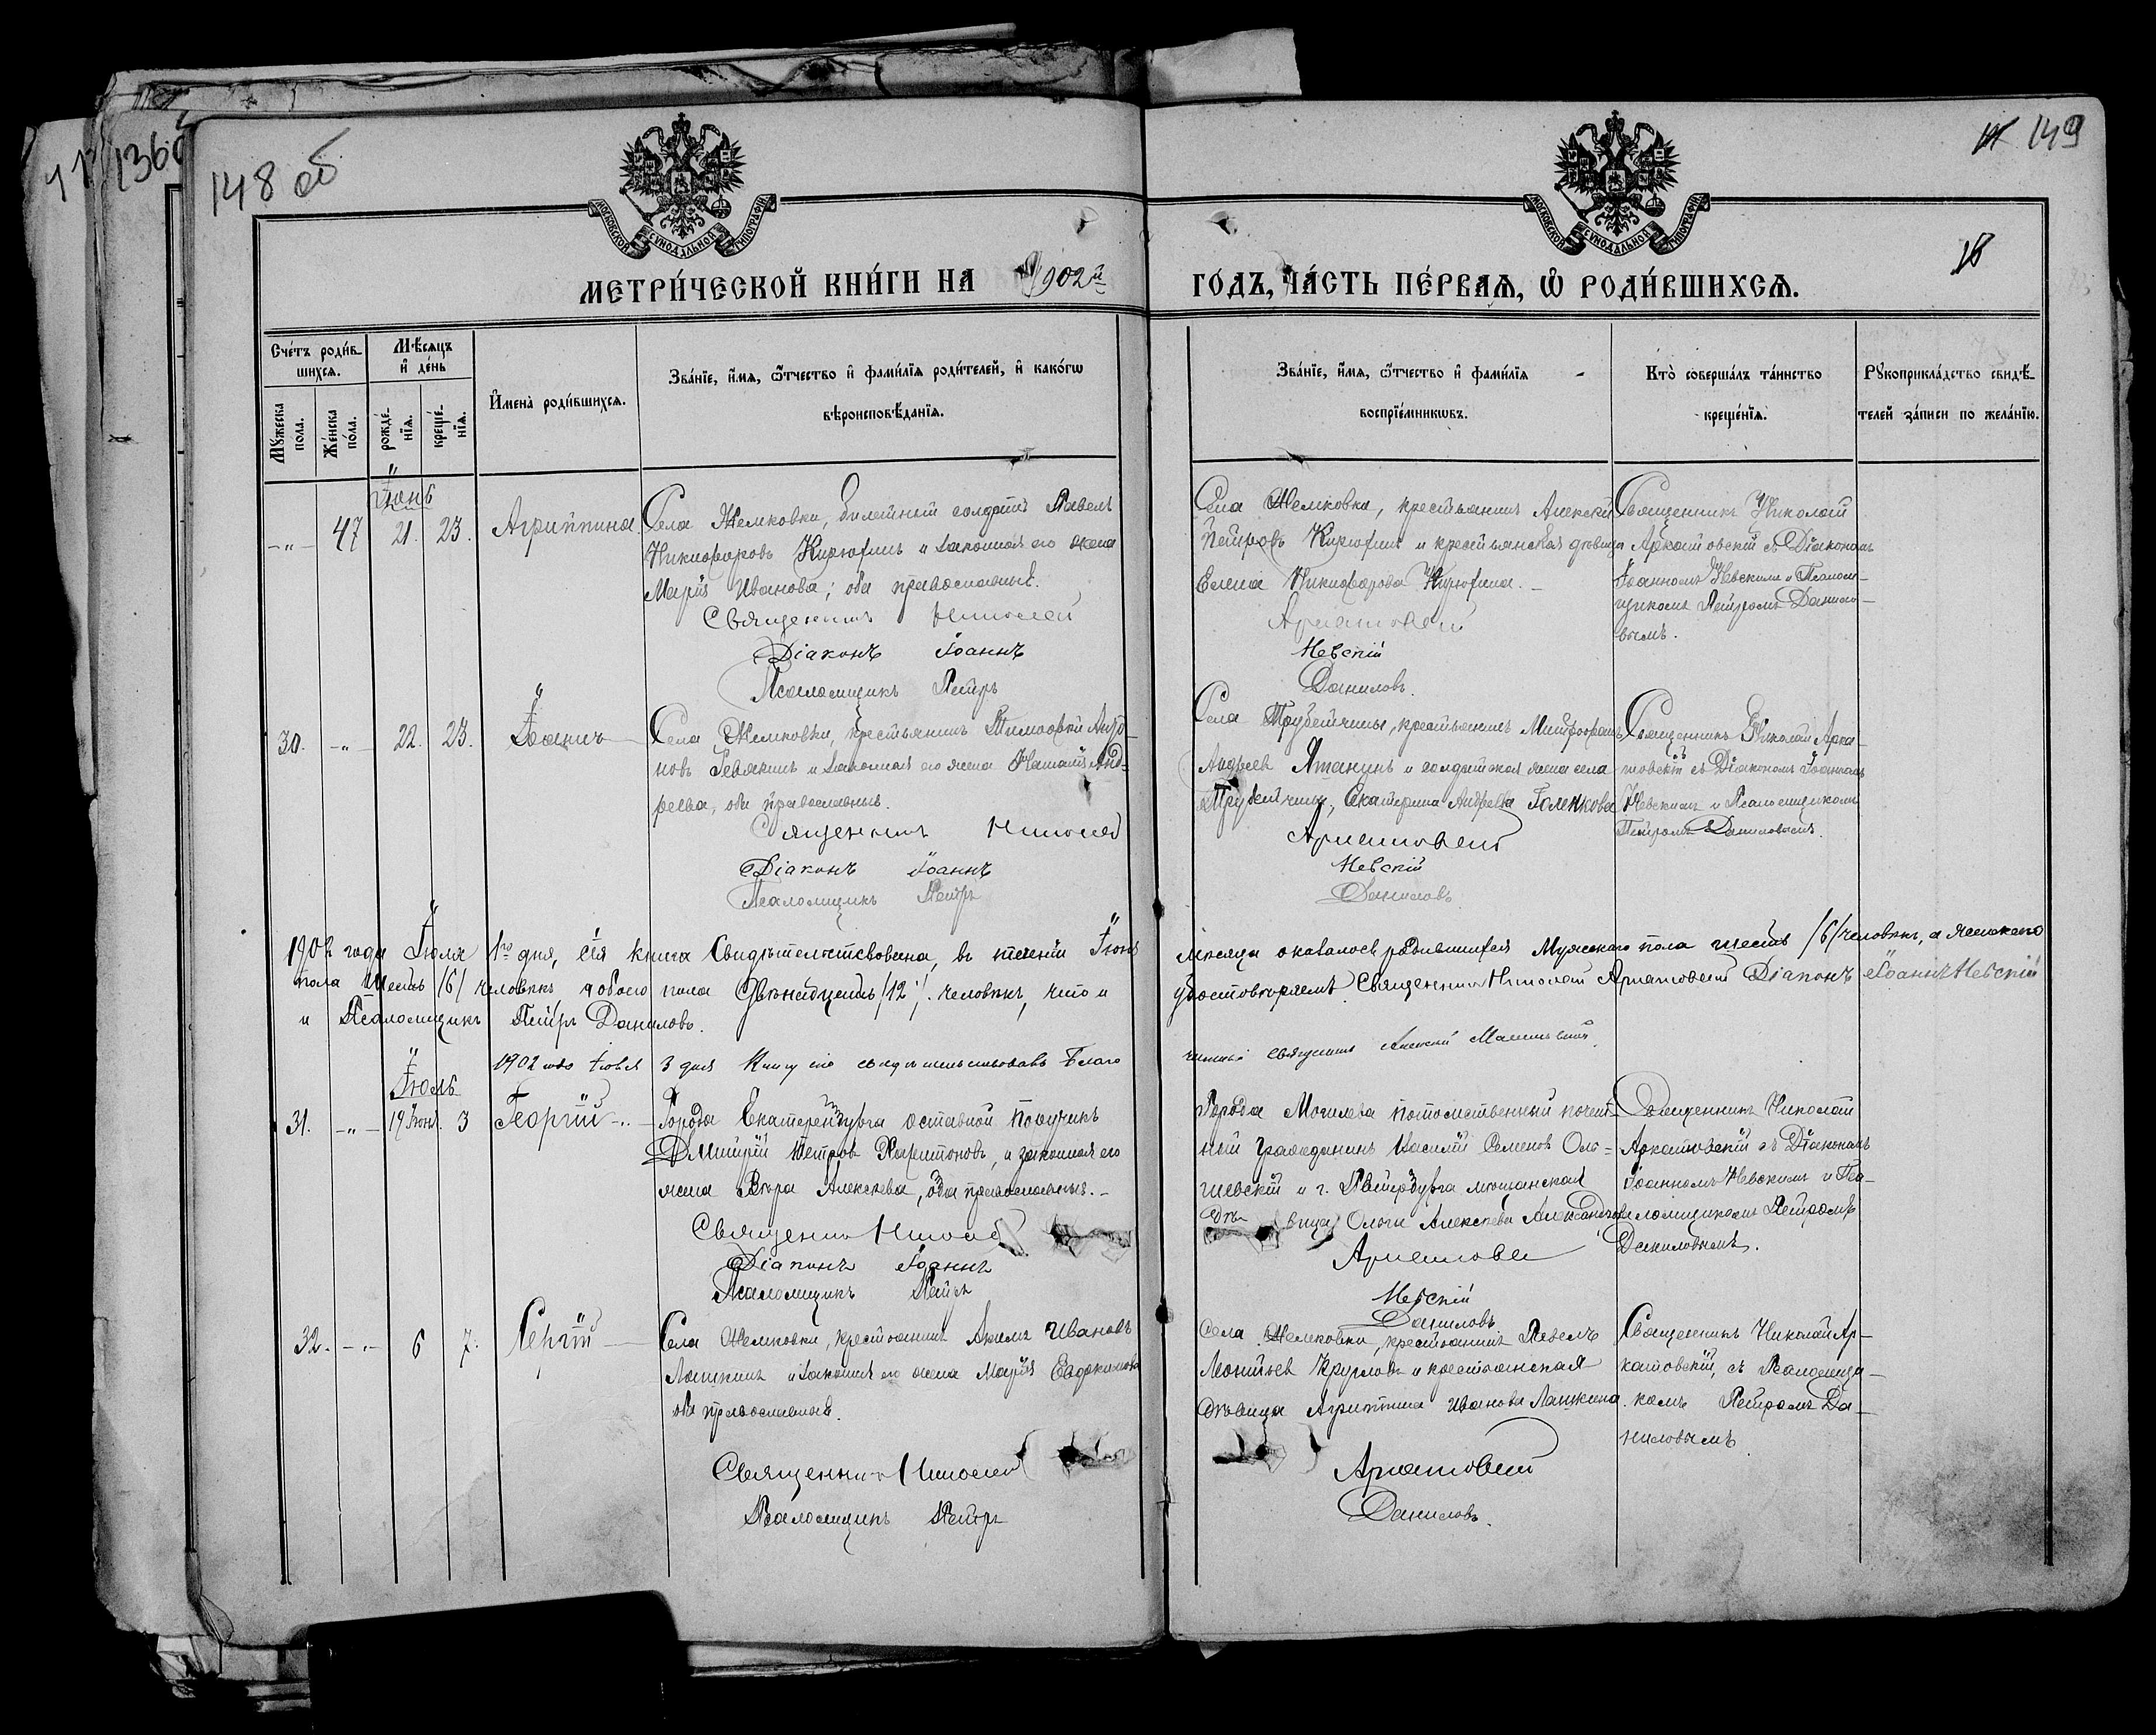 148 об
149
1360
МОСКОВСКОЙ СУНОДАЛЬНОЙ ТИПОГРАФІИ
МОСКОВСКОЙ СУНОДАЛЬНОЙ ТИПОГРАФІИ
МЕТРИ́ЧЕСКОЙ КНИ́ГИ НА 1902й
ГО́ДЪ, ЧА́СТЬ ПЕ́РВАѦ, Ѡ РОДИ́ВШИХСѦ.
Сче́тъ роди́в-
шихсѧ.
Мѣсѧцъ
и де́нь
Му́жеска
пола.
Же́нска
по́ла.
рожде́-
нїѧ.
креще́-
нїѧ.
Имена̀ роди́вшихсѧ.
Зва́нїе, и́мѧ, ѻ́тчество и фами́лїѧ роди́телей, и како́гѡ
вѣроисповѣ́данїѧ.
Зва́нїе, и́мѧ, ѻ́тчество и фами́лїѧ
воспрїе́мникѡвъ.
Кто̀ соверша́лъ та́инство
креще́нїѧ.
Рꙋкоприкла́дство свидѣ́-
телей за́писи по жела́нїю.
Іюнь
-"- 47 21. 23. Агриппина
Села Жемковки, билетный солдатъ Павелъ
Никифоровъ Кирюфинъ и законная его жена
Марія Иванова; оба православные.
Священникъ Николай
Діаконъ Іоаннъ
Псаломщикъ Петръ
Села Жемковки, крестьянинъ Алексѣй
Петровъ Кирюфинъ и крестьянская дѣвица
Елена Никифорова Кирюфина. -
Аркатовскій
Невскій
Даниловъ.
Священникъ Николай
Аркатовскій съ Діакономъ
Іоанномъ Невскимъ и Псалом-
щикомъ Петромъ Данило-
вымъ.
30. -"- 22. 23. Іоаннъ
Села Жемковки, крестьянинъ Тимофей
новъ Ревякинъ и законная его жена Наталія Анд-
реева, оба православные.
Священникъ Николай
Діаконъ Іоаннъ
Псаломщикъ Петръ
Села Трубетчины, крестьянинъ Митрофанъ
Андреев и солдатская жена села
Трубетчины, Екатерина Андреева Голенкова
Аркатовскій
Невскій
Даниловъ.
Священникъ Николай Арка-
товскій съ Діакономъ Іоанномъ
Невскимъ и Псаломщикомъ
Петромъ Даниловымъ.
1902 года Іюля 1го дня, сія книга свидѣтельствована, въ теченіи Іюня
мѣсяца оказалось родившихся Мужескаго пола шесть /6/ человѣкъ, а женскаго
пола шесть /6/ человѣкъ обоего пола Двѣнадцать /12/. человѣкъ, что и
удостовѣряемъ: Священникъ Николай Аркатовскій Діаконъ Іоаннъ Невскій
и Псаломщикъ Петръ Даниловъ.
1902 года Іюля 3 дня Книгу сію свидѣтельствовалъ Благо
чинный священникъ Алексѣй
Іюль
31. -"- 19 Іюня. 3 Георгій
Города Екатеренбурга оставной поручикъ
Дмитрій Петров Харитоновъ, и законная его
жена Вѣра Алексѣева, оба православные. -
Священникъ Николай
Діаконъ Іоаннъ
Псаломщикъ Петръ
Города Могилева потомственный почет-
ный гражданинъ Василій Семенов Оль-
шевскій и г. Петербурга мѣщанская
дѣвица Ольги Алексѣева Александрова
Аркатовскій
Невскій
Даниловъ
Священникъ Николай
Аркатовскій съ Діакономъ
Іоанномъ Невскимъ и Пса-
ломщикомъ Петромъ
Даниловымъ.
32. -"- 6 7. Сергій
Села Жемковки, крестьянинъ Акимъ Ивановъ
Лашкинъ и законная его жена Марія Евдокимова
оба православные.
Священникъ Николай
Псаломщикъ Петръ
Села Жемковки, крестьянинъ Павелъ
Леонтьев Круглов и крестьянская
дѣвица Агриппина Иванова Лашкина.
Аркатовскій
Даниловъ.
Священникъ Николай Ар-
катовскій, съ Псаломщи-
комъ Петромъ Да-
ниловымъ